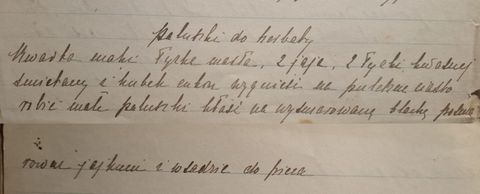 paluszki do herbaty
Kwarta mąki łyżka masła, 2 jaja, 2 łyżki kwaśnej
śmietany i kubek cukru wygnieść na pulchne ciasto
robić małe paluszki kłaść na wysmarowaną blachę posma
rować jajkami i wsadzić do pieca